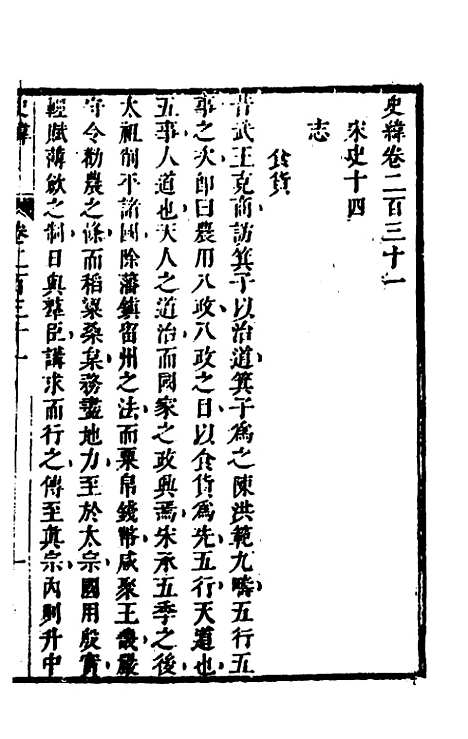 史緯卷二百三十一
宋史十四
志
食貨
昔武王克商訪箕子以治道箕子為之陳洪範九疇五行五
事之次卽曰農用八政八政之目以食貨為先五行天道也
五事人道也天人之道治而國家之政興焉宋承五季之後
太祖削平諸國除藩鎮留州之法而粟帛錢幣咸聚王畿嚴
守令勸農之條而稻粱桑枲務盡地力至於太宗國用殷實
輕賦薄斂之制日與羣臣講求而行之傳至真宗內則升中
史緯
卷二百三十一
一